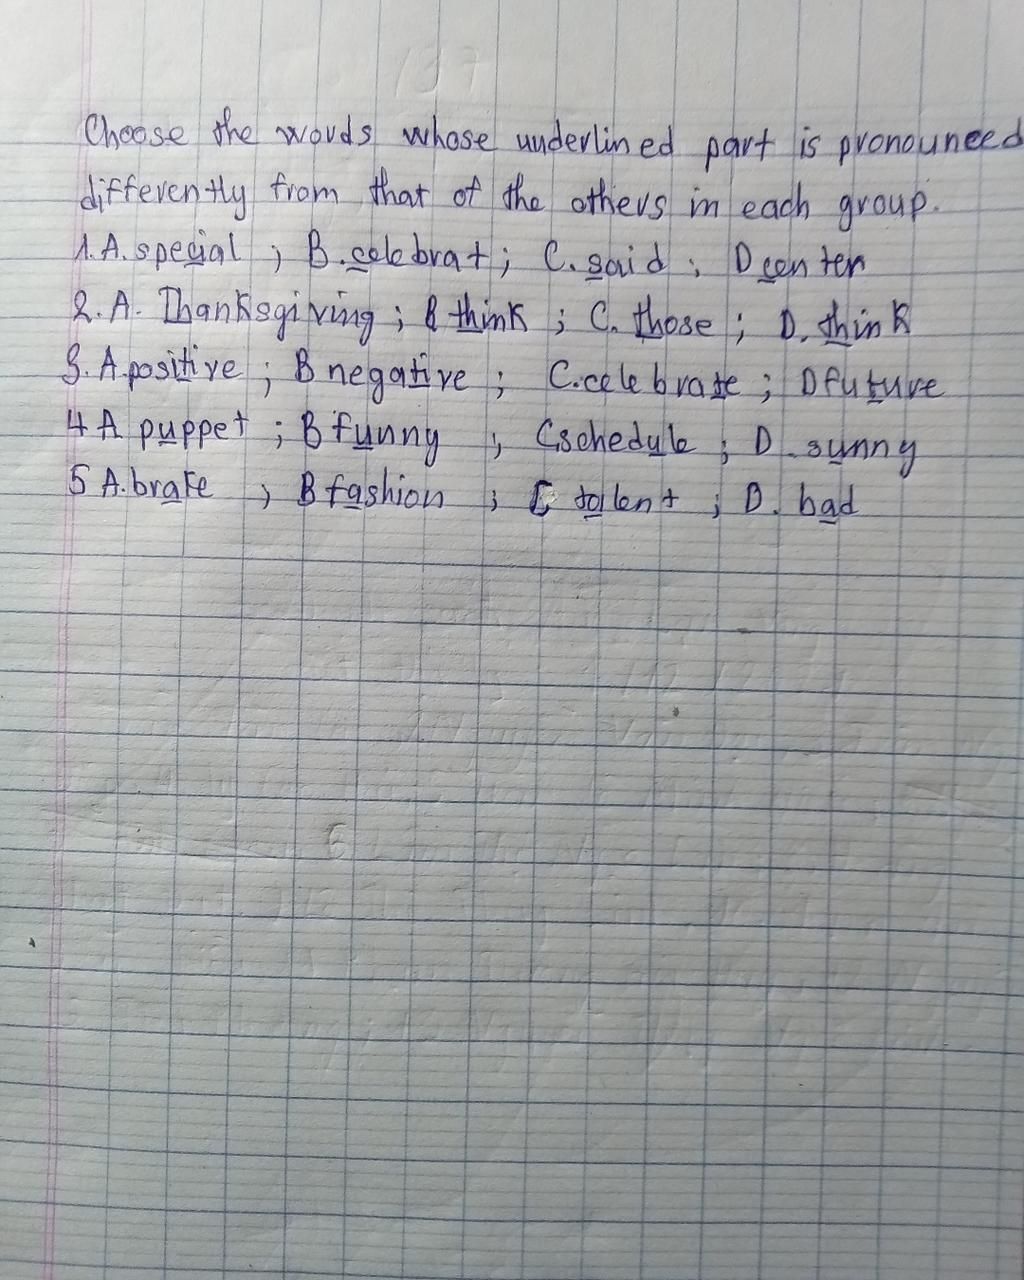 Choose the words whose underlined part is pronouneed
differently from that of the others in each group.
1.A. special ; B.celebrat ; C. said ; D center
2. A. Thanksgiving ; B think ; C. those ; D. think
3. A positive ; B negative ; C.celebrate ; D future
4 A puppet ; B funny ; C schedule ; D. sunny
5 A.brake ; B fashion ; C talent ; D. bad